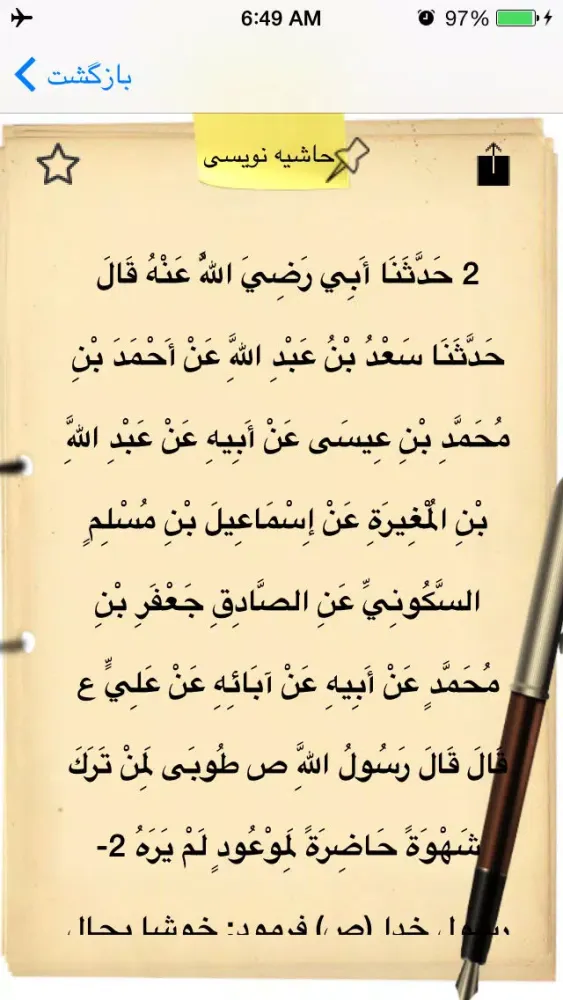 6:49 AM 97%
بازگشت
حاشیه نویسی
2 حَدَّثَنَا أَبِي رَضِيَ اللَّهُ عَنْهُ قَالَ
حَدَّثَنَا سَعْدُ بْنُ عَبْدِ اللَّهِ عَنْ أَحْمَدَ بْنِ
مُحَمَّدِ بْنِ عِيسَى عَنْ أَبِيهِ عَنْ عَبْدِ اللَّهِ
بْنِ الْمُغِيرَةِ عَنْ إِسْمَاعِيلَ بْنِ مُسْلِمٍ
السَّكُونِيِّ عَنِ الصَّادِقِ جَعْفَرِ بْنِ
مُحَمَّدٍ عَنْ أَبِيهِ عَنْ آبَائِهِ عَنْ عَلِيٍّ ع
قَالَ قَالَ رَسُولُ اللَّهِ ص طُوبَى لِمَنْ تَرَكَ
شَهْوَةً حَاضِرَةً لِمَوْعُودٍ لَمْ يَرَهُ 2-
رسول خدا (ص) فرمود: خوشا بحال